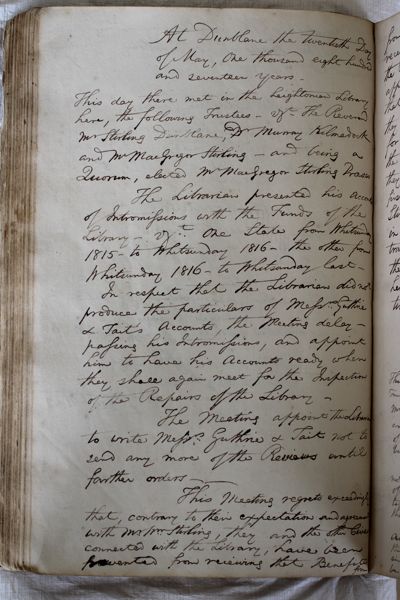 At Dunblane the twentieth Day
of May, One thousand eight hundred
and seventeen years -
This day there met in the Leightonian Library
here, the following Trustees - vizt. The Reverend
Mr Stirling Dunblane, Dr Murray Kilmadock
and Mr MacGregor Stirling - and being a
Quorum, elected Mr MacGregor Stirling Preses
The Librarian presented his Accot
of Intromissions with the Funds of the
Library - vizt. One State from Whitsunday
1815 - to Whitsunday 1816 - the other from
Whitsunday 1816 - to Whitsunday last -
In respect that the Librarian did not
produce the particulars of Messrs. Guthrie
& Tait's Accounts, the Meeting delay -
passing his Intromissions, and appoint
him to have his Accounts ready when
they shall again meet for the Inspection
of the Repairs of the Library -
The Meeting appoint the Librarian
to write Messrs. Guthrie & Tait not to
send any more of the Reviews until
farther orders -
This Meeting regrets exceedingly
that, contrary to their expectation and agreement
with Mr Stirling, they and the other
connected with the Library, have been
prevented from receiving that Benefit
from